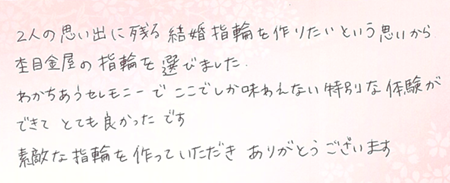 2人の思い出に残る結婚指輪を作りたいという思いから
杢目金屋の指輪を選びました.
わかちあうセレモニーでここでしか味わえない特別な体験が
できてとても良かったです
素敵な指輪を作っていただきありがとうございます